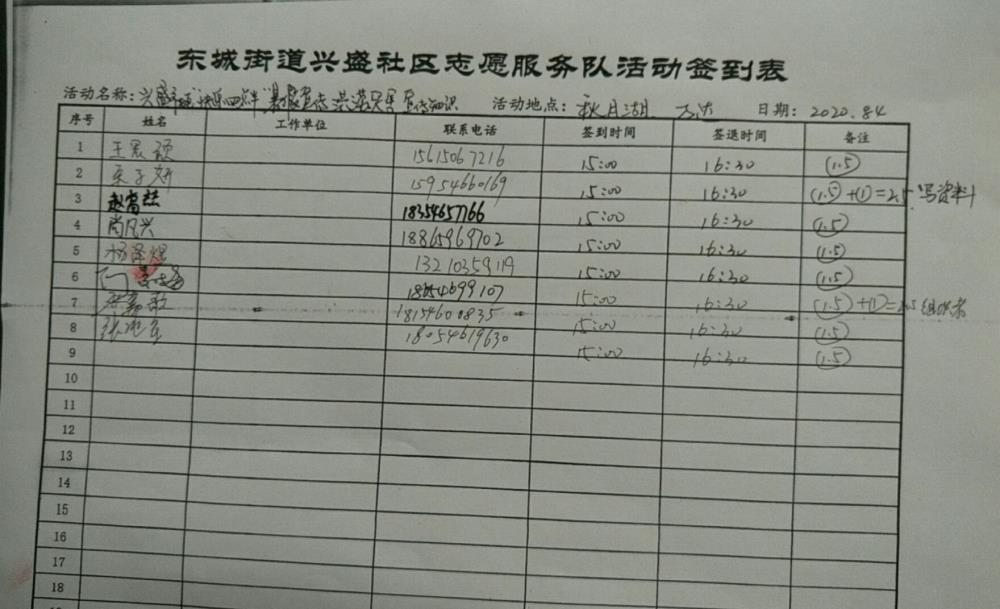 东城街道兴盛社区志愿服务队活动签到表
活动名称: 兴盛社区 四点半 暑假宣传洪涝灾害宣传知识 活动地点: 秋月湖 万达 日期: 2020.8.4
序号 姓名 工作单位 联系电话 签到时间 签退时间 备注
1 15615067216 15:00 16:30 (1.5)
2 15954660169 15:00 16:30 (1.5)+(1)=2.5 写资料
3 赵富喆 18354657766 15:00 16:30 (1.5)
4 尚凡兴 18865969702 15:00 16:30 (1.5)
5 杨泽煜 13210359119 15:00 16:30 (1.5)
6 18054699107 15:00 16:30 (1.5)+(1)=2.5 组织者
7 18154600835 15:00 16:30 (1.5)
8 18054619630 15:00 16:30 (1.5)
9
10
11
12
13
14
15
16
17
18